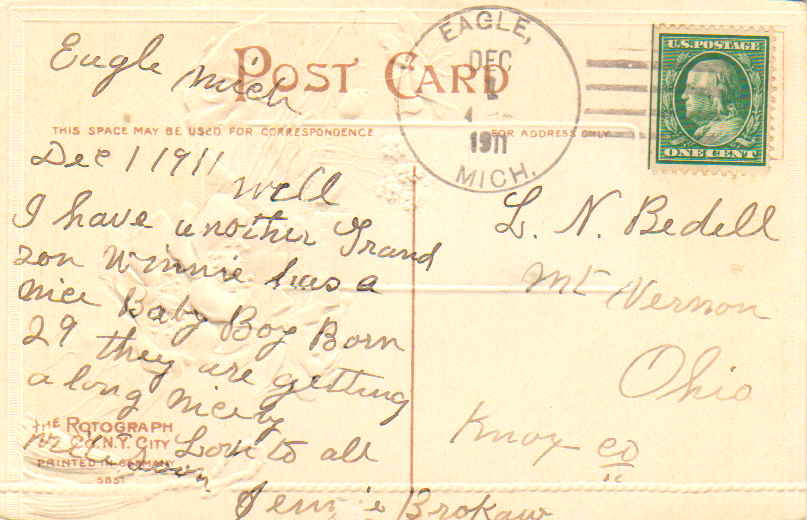 POST CARD
THIS SPACE MAY BE USED FOR CORRESPONDENCE
FOR ADDRESS ONLY
EAGLE,
DEC
1
1911
MICH.
U.S. POSTAGE
ONE CENT
Eagle Mich
Dec 1 1911
Well
I have another Grand
son Winnie has a
nice Baby Boy Born
29 they are getting
a long nicely
write soon Love to all
Jennie Brokaw
L. N. Bedell
Mt Vernon
Ohio
Knox co
THE ROTOGRAPH
CO. N.Y. CITY
PRINTED IN GERMANY